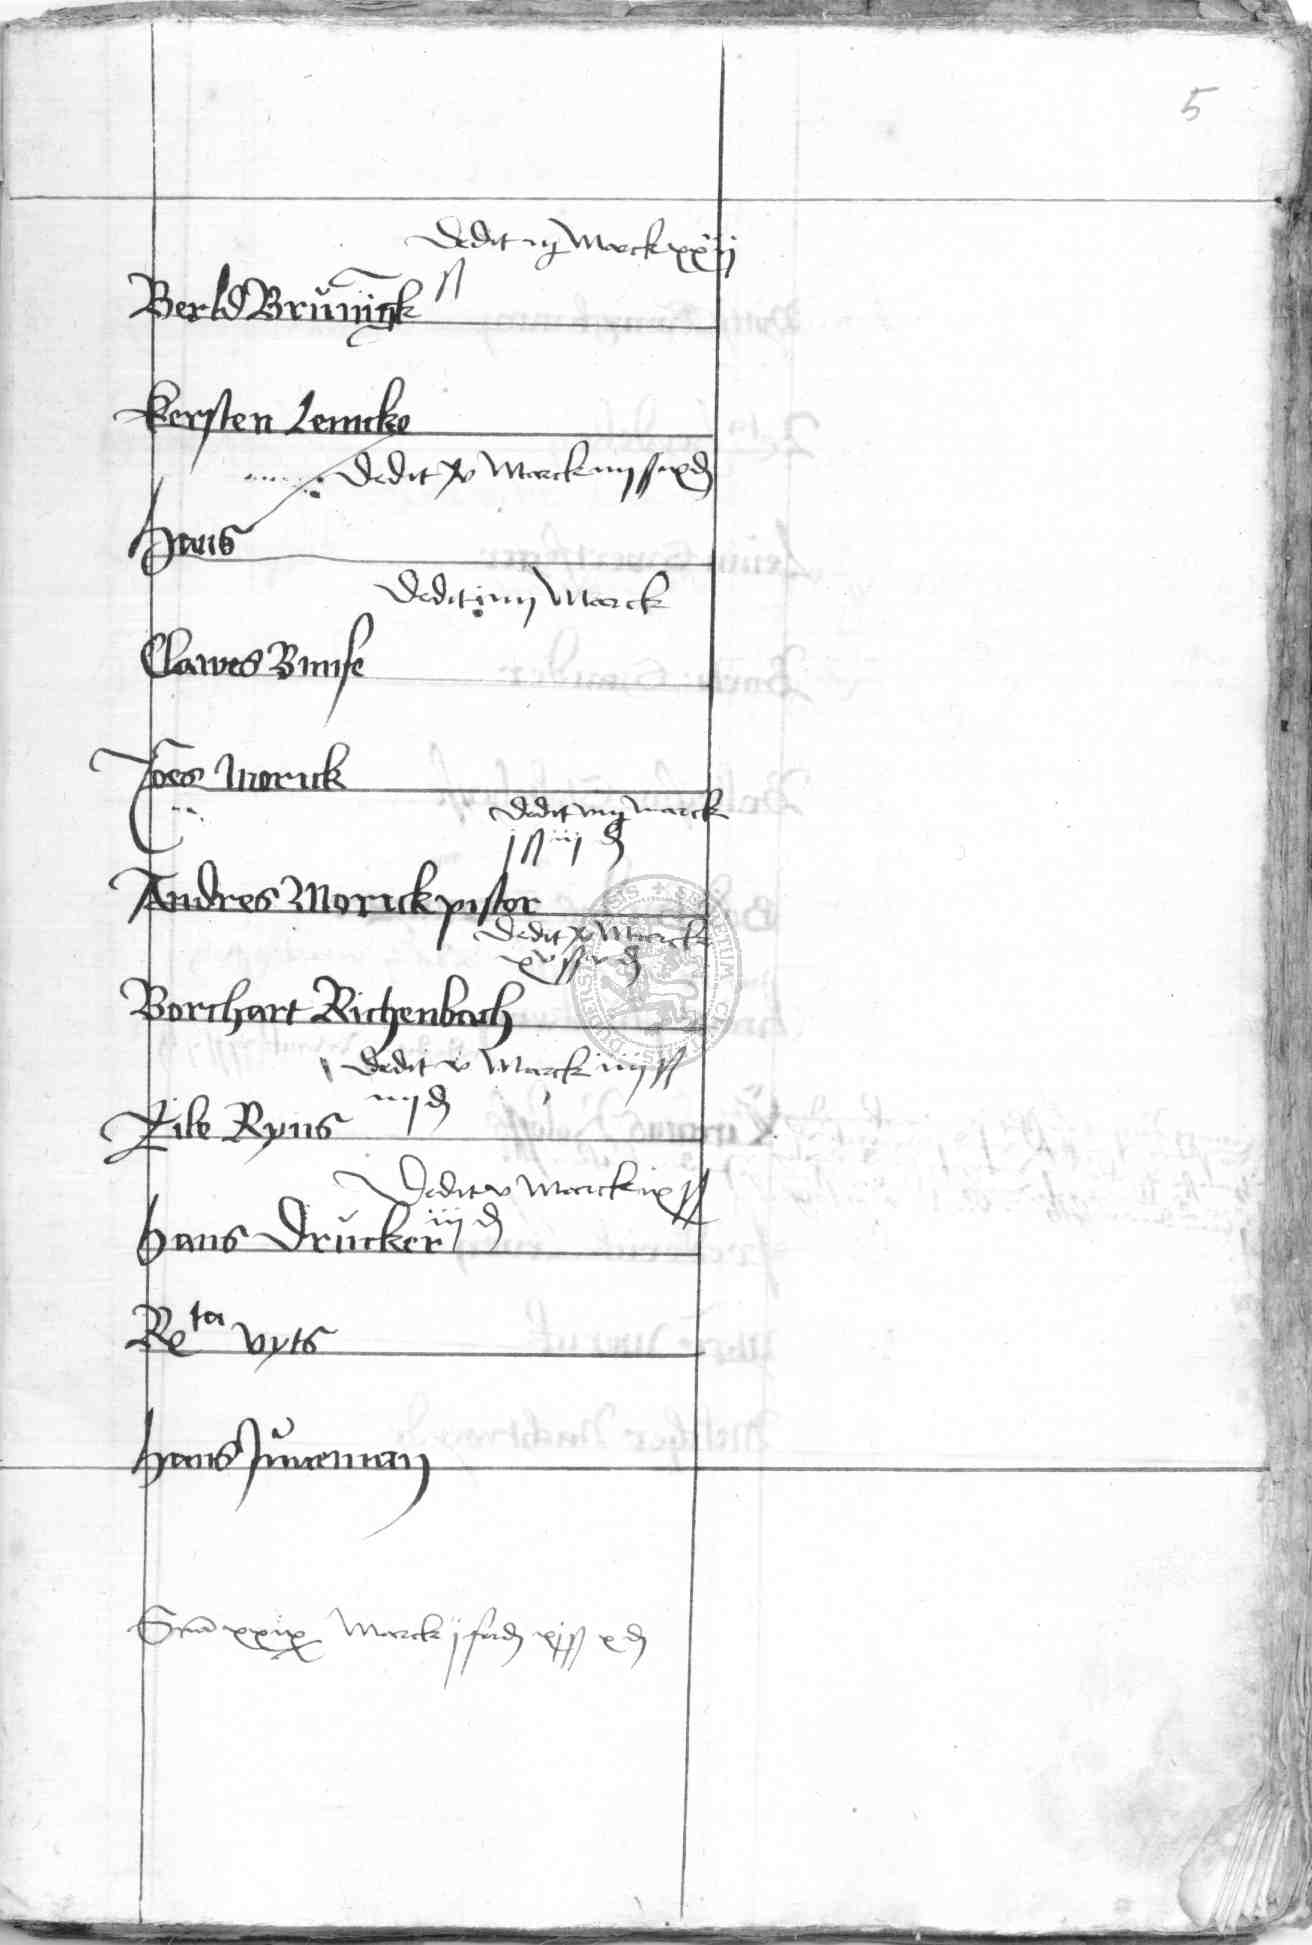 5
dedit iij Marck xxiij
ß
Berld Brŭningk
Kersten Lemcke
dedit xv Marck iiij ß xg d
Hans
dedit iiij Marck
Clawes Bunse
Joes Morick
dedit viij marck
j ß iij d
Andres Morick pistor
dedit x Marck
xv ß v d
Borchart Richenbach
dedit v Marck iiij ß
iiij d
Tile Ryns
Dedit v Marck ix ß
Hans Drŭcker iij d
Reta vyts
Hans Jŭneman
Sma xxix Marck j ferd xj ß x d